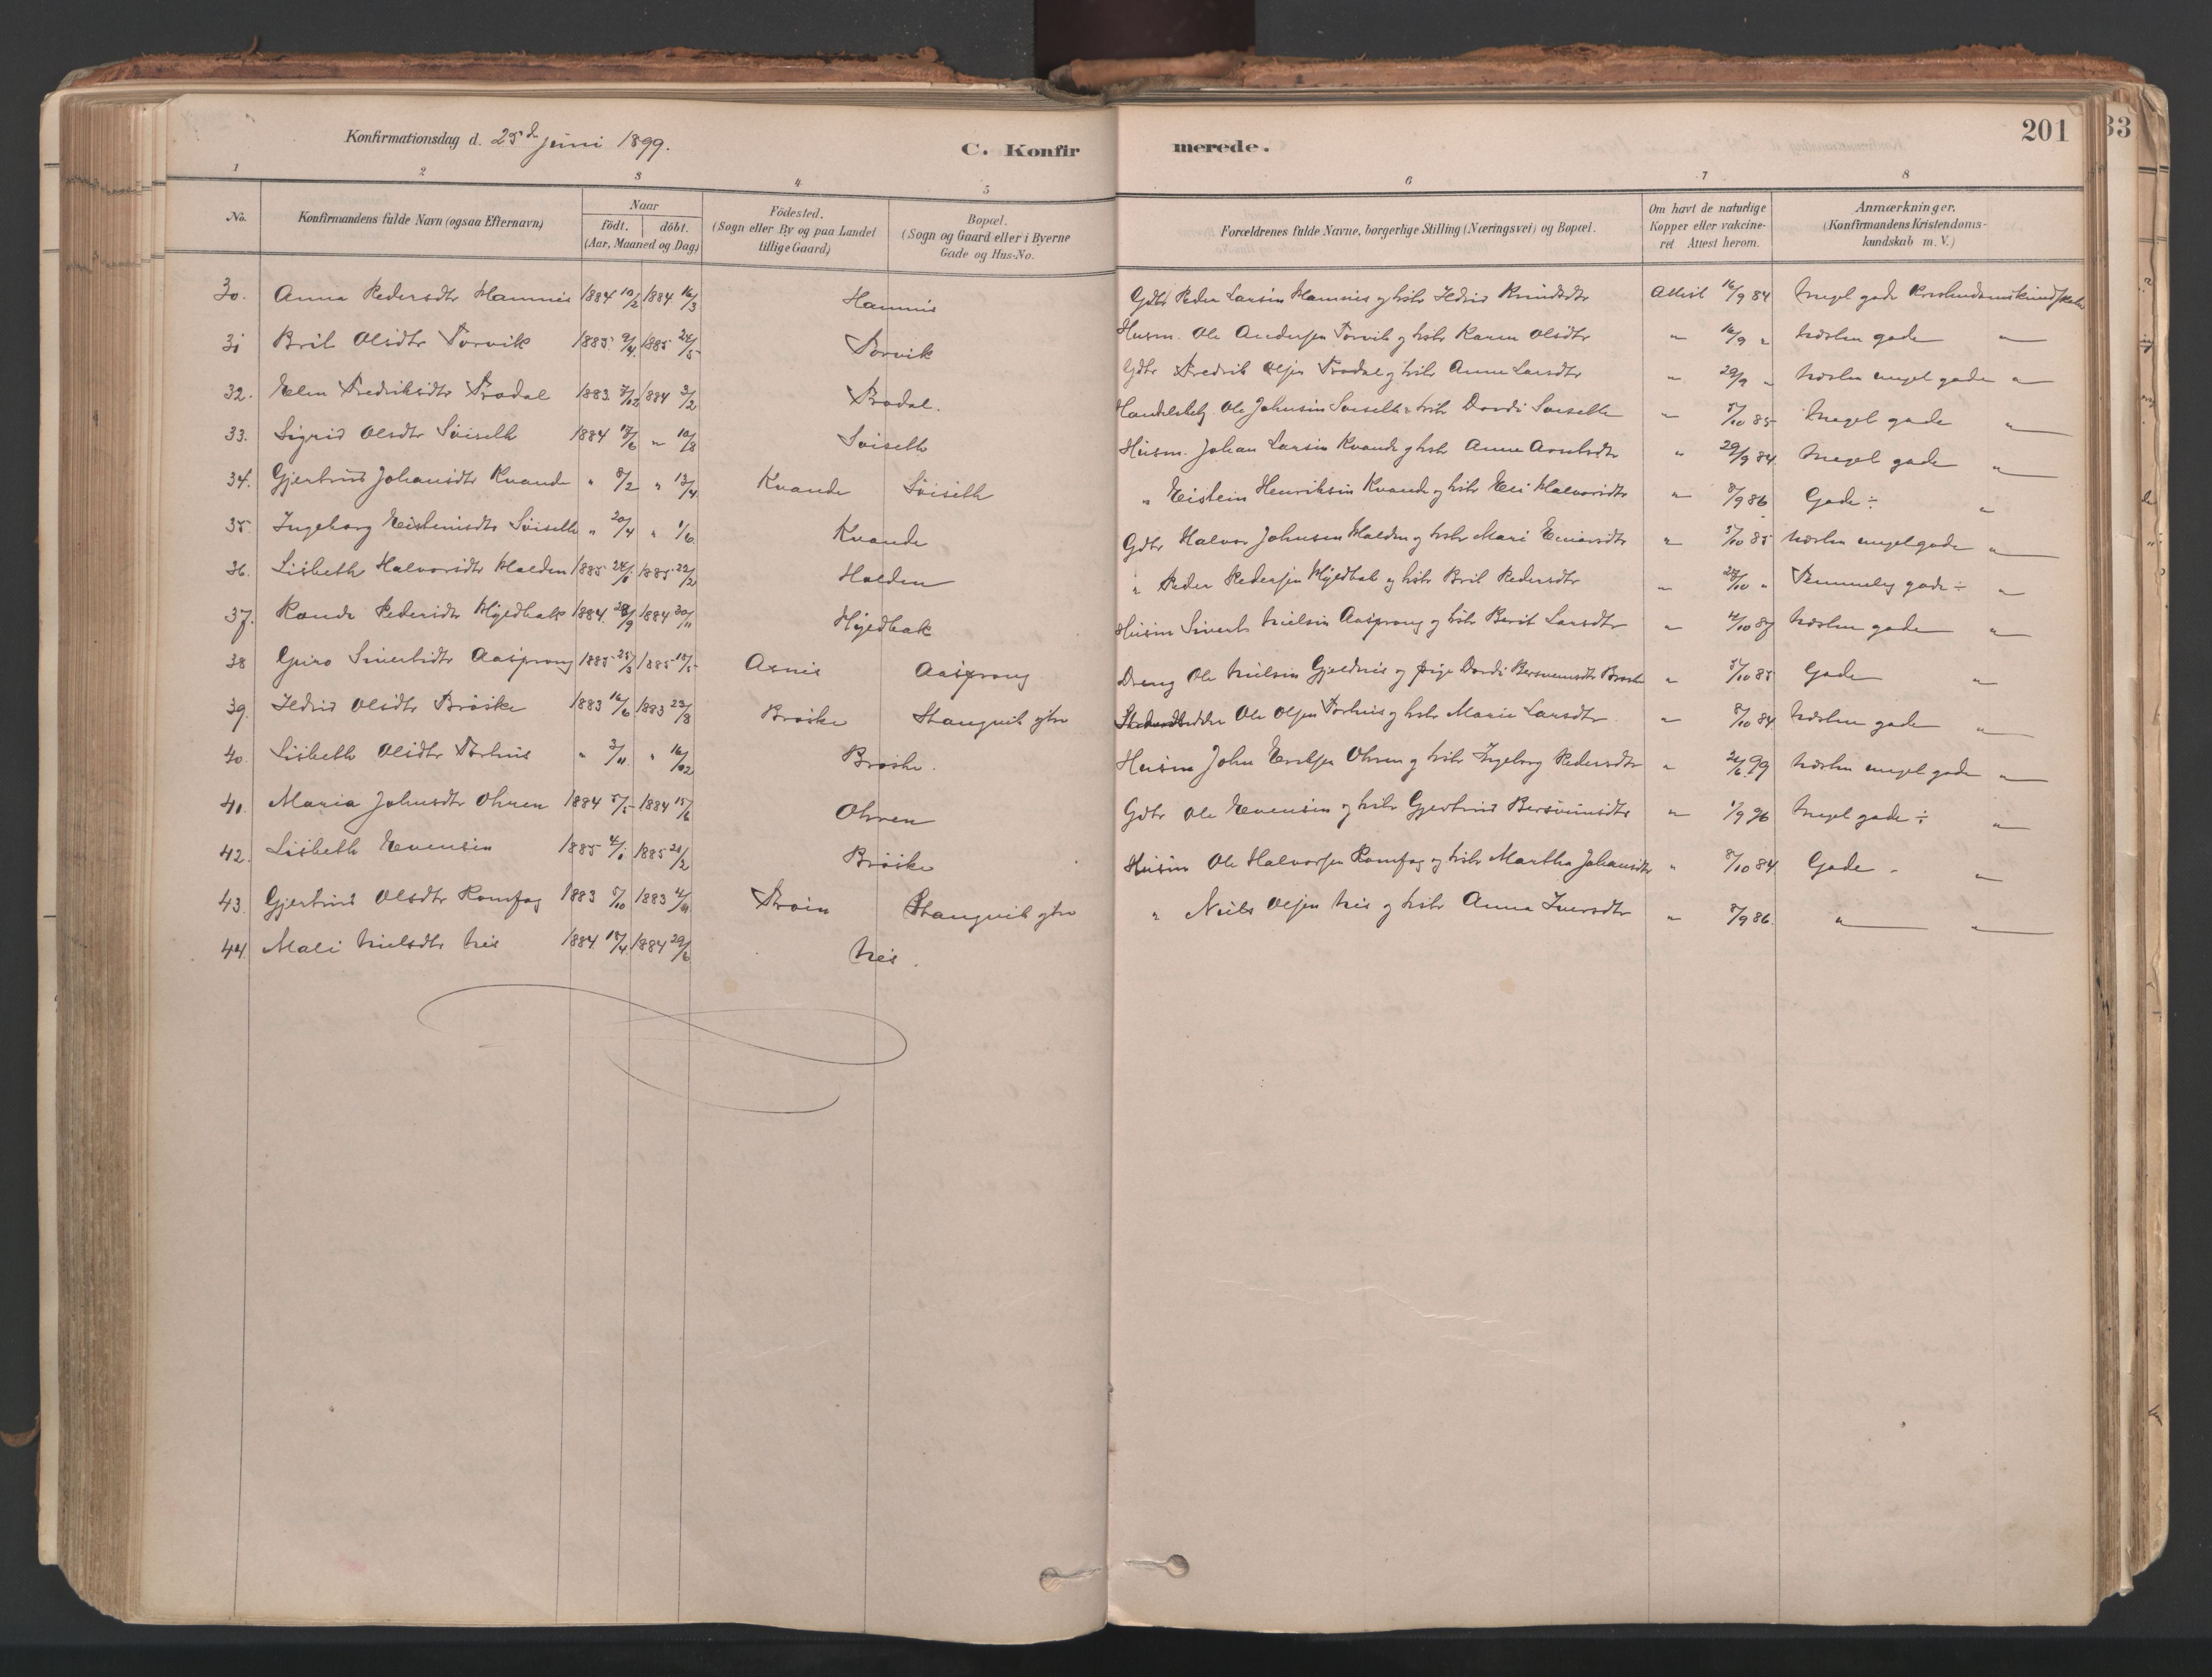 Konfirmationsdag d. 25de juni 1899.
C. Konfirmerede.
201
33
1 2 3 4 5 6 7 8
No. Konfirmandens fulde Navn (ogsaa Efternavn) Naar födt. döbt. (Aar, Maaned og Dag) Födested. (Sogn eller By og paa Landet tillige Gaard) Bopæl. (Sogn og Gaard eller i Byerne Gade og Hus-No. Forældrenes fulde Navne, borgerlige Stilling (Næringsvei) og Bopæl. Om havt de naturlige Kopper eller vakcineret Attest herom. Anmærkninger. (Konfirmandens Kristendomskundskab m. V.)
30. Anna Pedersdtr Hamnes 1884 10/2 1884 16/3 Hamnes Gdbr Peder Larsen Hamnes og hstr Ildrid Knudsdtr Attest 16/9 84 Meget gode Kristendomskundskab
31 Brit Olsdtr Torvik 1885 9/4 1885 24/5 Torvik Husm. Ole Andersen Torvik og hstr Karen Olsdtr " 16/9 " Næsten gode "
32. Elen Fredriksdtr Trodal 1883 7/12 1884 3/2 Trodal. Gdbr Fredrik Olsen Trodal og hstr Anne Larsdtr " 29/9 " Næsten meget gode "
33. Sigrid Olsdtr Söiseth 1884 17/6 " 10/8 Söiseth Handelsbetj. Ole Johnsen Söiseth & hstr Dordi Söiseth " 5/10 85 Meget gode "
34. Gjertrud Johansdtr Kvande " 8/2 " 13/4 Kvande Söiseth Husm. Johan Larsen Kvande og hstr Anne " 29/9 84 Meget gode "
35. Ingeborg Eisteinsdtr Söiseth " 20/4 " 1/6. Kvande " Eistein Henriksen Kvande og hstr Eli Halvorsdtr " 8/9 86 Gode ÷ "
36. Lisbeth Halvorsdtr Halden 1885 24/1 1885 22/2 Halden Gdbr Halvor Johnsen Halden og hstr Mari Einarsdtr " 5/10 85 Næsten meget gode "
37. Rande Pedersdtr Hyldbak 1884 28/9 1884 30/11 Hyldbak " Peder Pedersen Hyldbak og hstr Brit Pedersdtr " 28/10 " Temmelig gode ÷ "
38 Guro Sivertsdtr Aasprong 1885 25/3 1885 10/5 Asnes Aasprong Husm Sivert Nielsen Aasprong og hstr Berit Larsdtr " 4/10 87 Næsten gode "
39. Ildrid Olsdtr Bröske 1883 16/6 1883 23/8 Bröske Stangvik gtn Dreng Ole Nielsen Gjeldnes og pige Dordi Bersveinsdtr Bröske " 5/10 85 Gode "
40. Lisbeth Olsdtr Torhus " 3/11. " 16/12 Bröske. Ole Olsen Torhus og hstr Marie Larsdtr " 8/10 84. Næsten gode "
41. Maria Johnsdtr Ohren 1884 5/5 1884 15/6 Ohren Husm John Ohren og hstr Ingeborg Pedersdtr " 24/6 99 Næsten meget gode "
42. Lisbeth Evensen 1885 4/1 1885 21/2 Bröske Gdbr Ole Evensen og hstr Gjertrud Bersveinsdtr " 1/9 96 Meget gode ÷ "
43. Gjertrud Olsdtr Romfog 1883 5/10 1883 4/11 Stangvik gtn Husm Ole Halvorsen Romfog og hstr Martha Johansdtr " 8/10 84 Gode "
44. Mali Nielsdtr Nes 1884 14/4 1884 29/6 Nes. " Niels Olsen Nes og hstr Anna Iversdtr " 8/9 86. " "